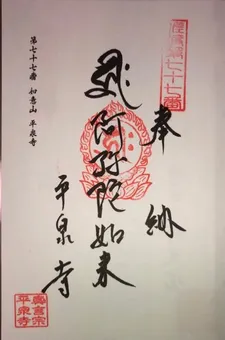 奉納
阿弥陀如来
平泉寺
第七十七番 如意山 平泉寺
第七十七番
真言宗
平泉寺